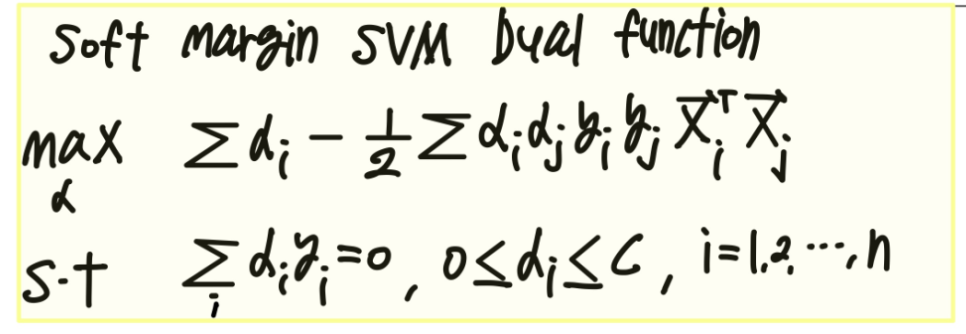 Soft margin SVM Dual function
max_α ∑ α_i - 1/2 ∑ α_i α_j y_i y_j x⃗_i^T x⃗_j
s.t ∑_i α_i y_i = 0, 0 ≤ α_i ≤ C, i = 1, 2, ⋯, n